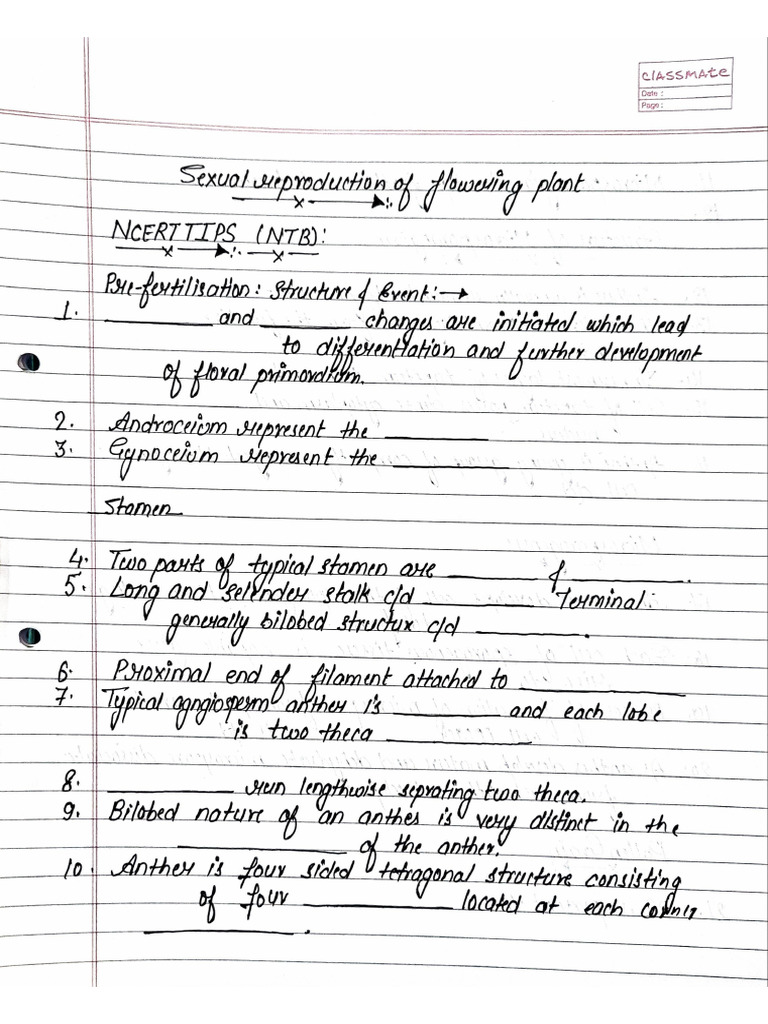 classmate
Date :
Page :
Sexual reproduction of flowering plant
NCERT TIPS (NTB):
Pre-fertilisation: Structure & Event:→
1. __________ and __________ changes are initiated which lead
to differentiation and further development
of floral primordium.
2. Androceium represent the __________
3. Gynoceium represent the __________
Stamen
4. Two parts of typical stamen are __________ & __________.
5. Long and selender stalk c/d __________ Terminal:
generally bilobed structur c/d __________.
6. Proximal end of filament attached to __________
7. Typical agngiosperm anther is __________ and each lobe
is two theca __________
8. __________ run lengthwise seprating two theca.
9. Bilobed nature of an anther is very distinct in the
__________ of the anther.
10. Anther is four sided tetragonal structure consisting
of four __________ located at each corner
__________.